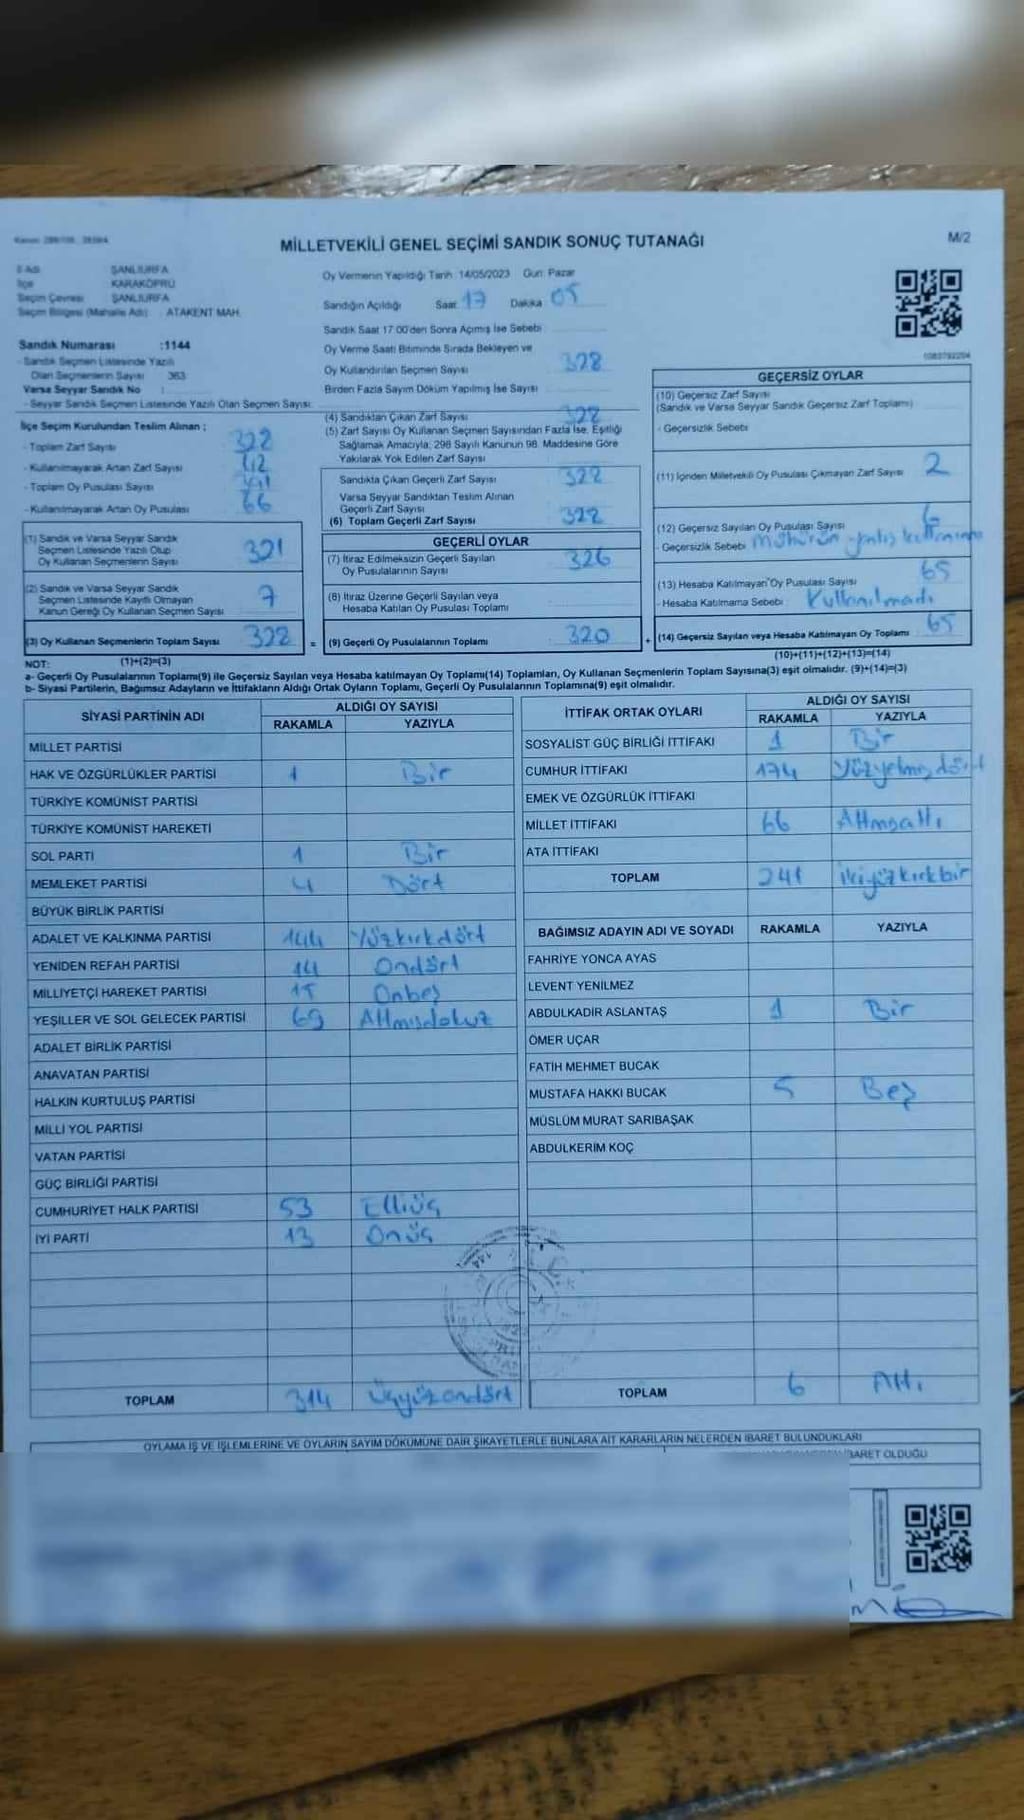 MİLLETVEKİLİ GENEL SEÇİMİ SANDIK SONUÇ TUTANAĞI
M/2
İl Adı ŞANLIURFA
İlçe KARAKÖPRÜ
Seçim Çevresi ŞANLIURFA
Seçim Bölgesi (Mahalle Adı) : ATAKENT MAH.
Sandık Numarası :1144
- Sandık Seçmen Listesinde Yazılı
Olan Seçmenlerin Sayısı 363
Varsa Seyyar Sandık No :
- Seyyar Sandık Seçmen Listesinde Yazılı Olan Seçmen Sayısı:
Oy Vermenin Yapıldığı Tarih: 14/05/2023 Gün: Pazar
Sandığın Açıldığı Saat: 17 Dakika 05
Sandık Saat 17:00'den Sonra Açımış İse Sebebi
Oy Verme Saati Bitiminde Sırada Bekleyen ve
Oy Kullandırılan Seçmen Sayısı 328
Birden Fazla Sayım Döküm Yapılmış İse Sayısı
İlçe Seçim Kurulundan Teslim Alınan ;
- Toplam Zarf Sayısı
- Kullanılmayarak Artan Zarf Sayısı
- Toplam Oy Pusulası Sayısı
- Kullanılmayarak Artan Oy Pusulası 66
(1) Sandık ve Varsa Seyyar Sandık
Seçmen Listesinde Yazılı Olup
Oy Kullanan Seçmenlerin Sayısı 321
(2) Sandık ve Varsa Seyyar Sandık
Seçmen Listesinde Kayıtlı Olmayan
Kanun Gereği Oy Kullanan Seçmen Sayısı 7
(3) Oy Kullanan Seçmenlerin Toplam Sayısı
(1)+(2)=(3)
(4) Sandıktan Çıkan Zarf Sayısı
(5) Zarf Sayısı Oy Kullanan Seçmen Sayısından Fazla İse, Eşitliği
Sağlamak Amacıyla; 298 Sayılı Kanunun 98. Maddesine Göre
Yakılarak Yok Edilen Zarf Sayısı
Sandıkta Çıkan Geçerli Zarf Sayısı
Varsa Seyyar Sandıktan Teslim Alınan
Geçerli Zarf Sayısı
(6) Toplam Geçerli Zarf Sayısı
GEÇERLİ OYLAR
(7) İtiraz Edilmeksizin Geçerli Sayılan
Oy Pusulalarının Sayısı 326
(8) İtiraz Üzerine Geçerli Sayılan veya
Hesaba Katılan Oy Pusulası Toplamı
= (9) Geçerli Oy Pusulalarının Toplamı 320
GEÇERSİZ OYLAR
(10) Geçersiz Zarf Sayısı
(Sandık ve Varsa Seyyar Sandık Geçersiz Zarf Toplamı)
- Geçersizlik Sebebi
(11) İçinden Milletvekili Oy Pusulası Çıkmayan Zarf Sayısı 2
(12) Geçersiz Sayılan Oy Pusulası Sayısı 6
- Geçersizlik Sebebi Mühürün yanlış
(13) Hesaba Katılmayan Oy Pusulası Sayısı 65
- Hesaba Katılmama Sebebi Kullanılmadı
+ (14) Geçersiz Sayılan veya Hesaba Katılmayan Oy Toplamı 65
(10)+(11)+(12)+(13)=(14)
NOT:
a- Geçerli Oy Pusulalarının Toplamı(9) ile Geçersiz Sayılan veya Hesaba katılmayan Oy Toplamı(14) Toplamları, Oy Kullanan Seçmenlerin Toplam Sayısına(3) eşit olmalıdır. (9)+(14)=(3)
b- Siyasi Partilerin, Bağımsız Adayların ve İttifakların Aldığı Ortak Oyların Toplamı, Geçerli Oy Pusulalarının Toplamına(9) eşit olmalıdır.
SİYASİ PARTİNİN ADI
ALDIĞI OY SAYISI
RAKAMLA YAZIYLA
MİLLET PARTİSİ
HAK VE ÖZGÜRLÜKLER PARTİSİ 1 Bir
TÜRKİYE KOMÜNİST PARTİSİ
TÜRKİYE KOMÜNİST HAREKETİ
SOL PARTİ 1 Bir
MEMLEKET PARTİSİ 4 Dört
BÜYÜK BİRLİK PARTİSİ
ADALET VE KALKINMA PARTİSİ 144 Yüzkırkdört
YENİDEN REFAH PARTİSİ 14 Ondört
MİLLİYETÇİ HAREKET PARTİSİ 15 Onbeş
YEŞİLLER VE SOL GELECEK PARTİSİ 69 Altmışdokuz
ADALET BİRLİK PARTİSİ
ANAVATAN PARTİSİ
HALKIN KURTULUŞ PARTİSİ
MİLLİ YOL PARTİSİ
VATAN PARTİSİ
GÜÇ BİRLİĞİ PARTİSİ
CUMHURİYET HALK PARTİSİ 53 Elliüç
İYİ PARTİ 13 Onüç
TOPLAM 314 Üçyüzondört
İTTİFAK ORTAK OYLARI
ALDIĞI OY SAYISI
RAKAMLA YAZIYLA
SOSYALİST GÜÇ BİRLİĞİ İTTİFAKI 1 Bir
CUMHUR İTTİFAKI 174 Yüzyetmişdört
EMEK VE ÖZGÜRLÜK İTTİFAKI
MİLLET İTTİFAKI 66 Altmışaltı
ATA İTTİFAKI
TOPLAM 241 İkiyüzkırkbir
BAĞIMSIZ ADAYIN ADI VE SOYADI RAKAMLA YAZIYLA
FAHRİYE YONCA AYAS
LEVENT YENİLMEZ
ABDULKADİR ASLANTAŞ 1 Bir
ÖMER UÇAR
FATİH MEHMET BUCAK
MUSTAFA HAKKI BUCAK 5 Beş
MÜSLÜM MURAT SARIBAŞAK
ABDULKERİM KOÇ
TOPLAM 6 Altı
OYLAMA İŞ VE İŞLEMLERİNE VE OYLARIN SAYIM DÖKÜMÜNE DAİR ŞİKAYETLERLE BUNLARA AİT KARARLARIN NELERDEN İBARET BULUNDUKLARI
İBARET OLDUĞU